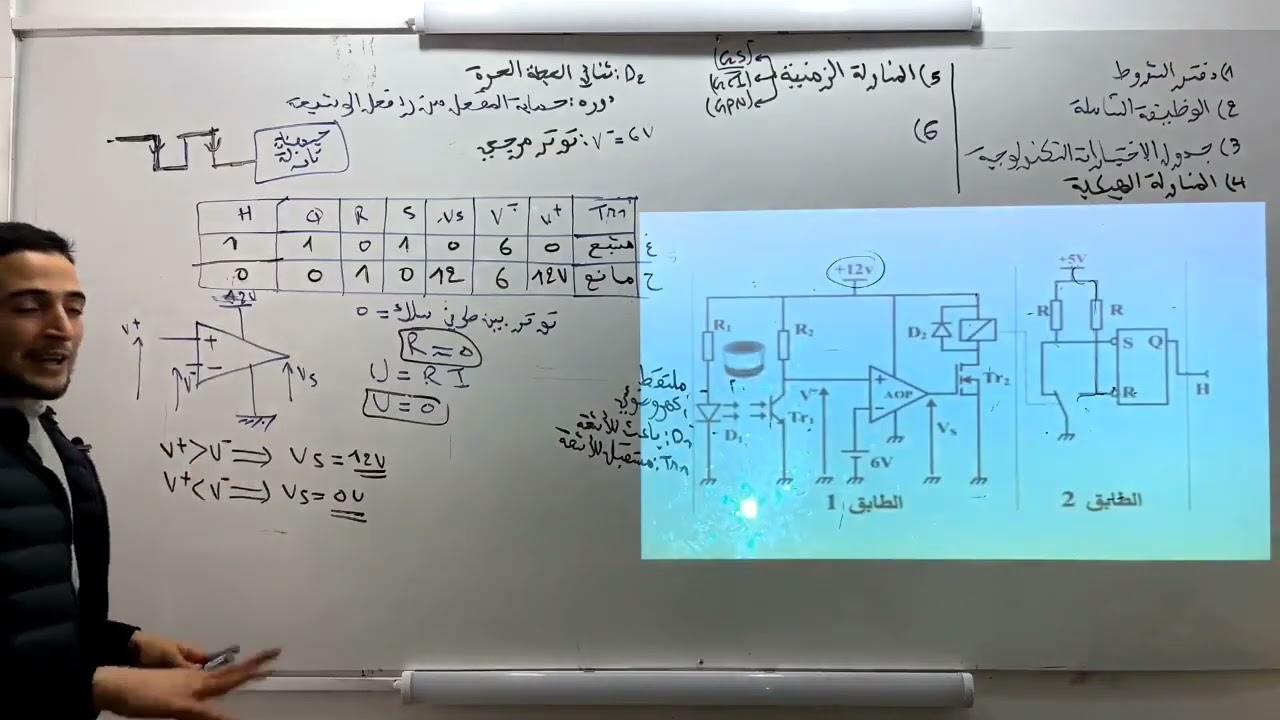 1) دفتر الشروط
2) الوظيفة الشاملة
3) جدول الاختيارات التكنولوجية
4) المناولة الهيكلية
5) المناولة الزمنية
(GS)
(GCI)
(GPN)
6)
D₂: ثنائي العجلة الحرة
دوره: حماية المقحل من رد فعل الوشيعة
V⁻=6V: توتر مرجعي
جبهة نازلة
H Q R S Vs V⁻ V⁺ Tr₁
1 1 0 1 0 6 0 متبع غ
0 0 1 0 12 6 12V مانع ح
توتر بين طرفي سلك = 0
R ≈ 0
U = R I
U = 0
+12V
V⁺ + V⁻ - Vs
V⁺>V⁻ ⟹ Vs = 12V
V⁺<V⁻ ⟹ Vs = 0V
ملتقط
كهروضوئي
D₁: باعث للأشعة
Tr₁: مستقبل للأشعة
+12v
R₁ R₂ D₂
D₁ Tr₁ V⁻ + - AOP Vs Tr₂
6V
الطابق 1
+5V
R R
S Q
R H
الطابق 2